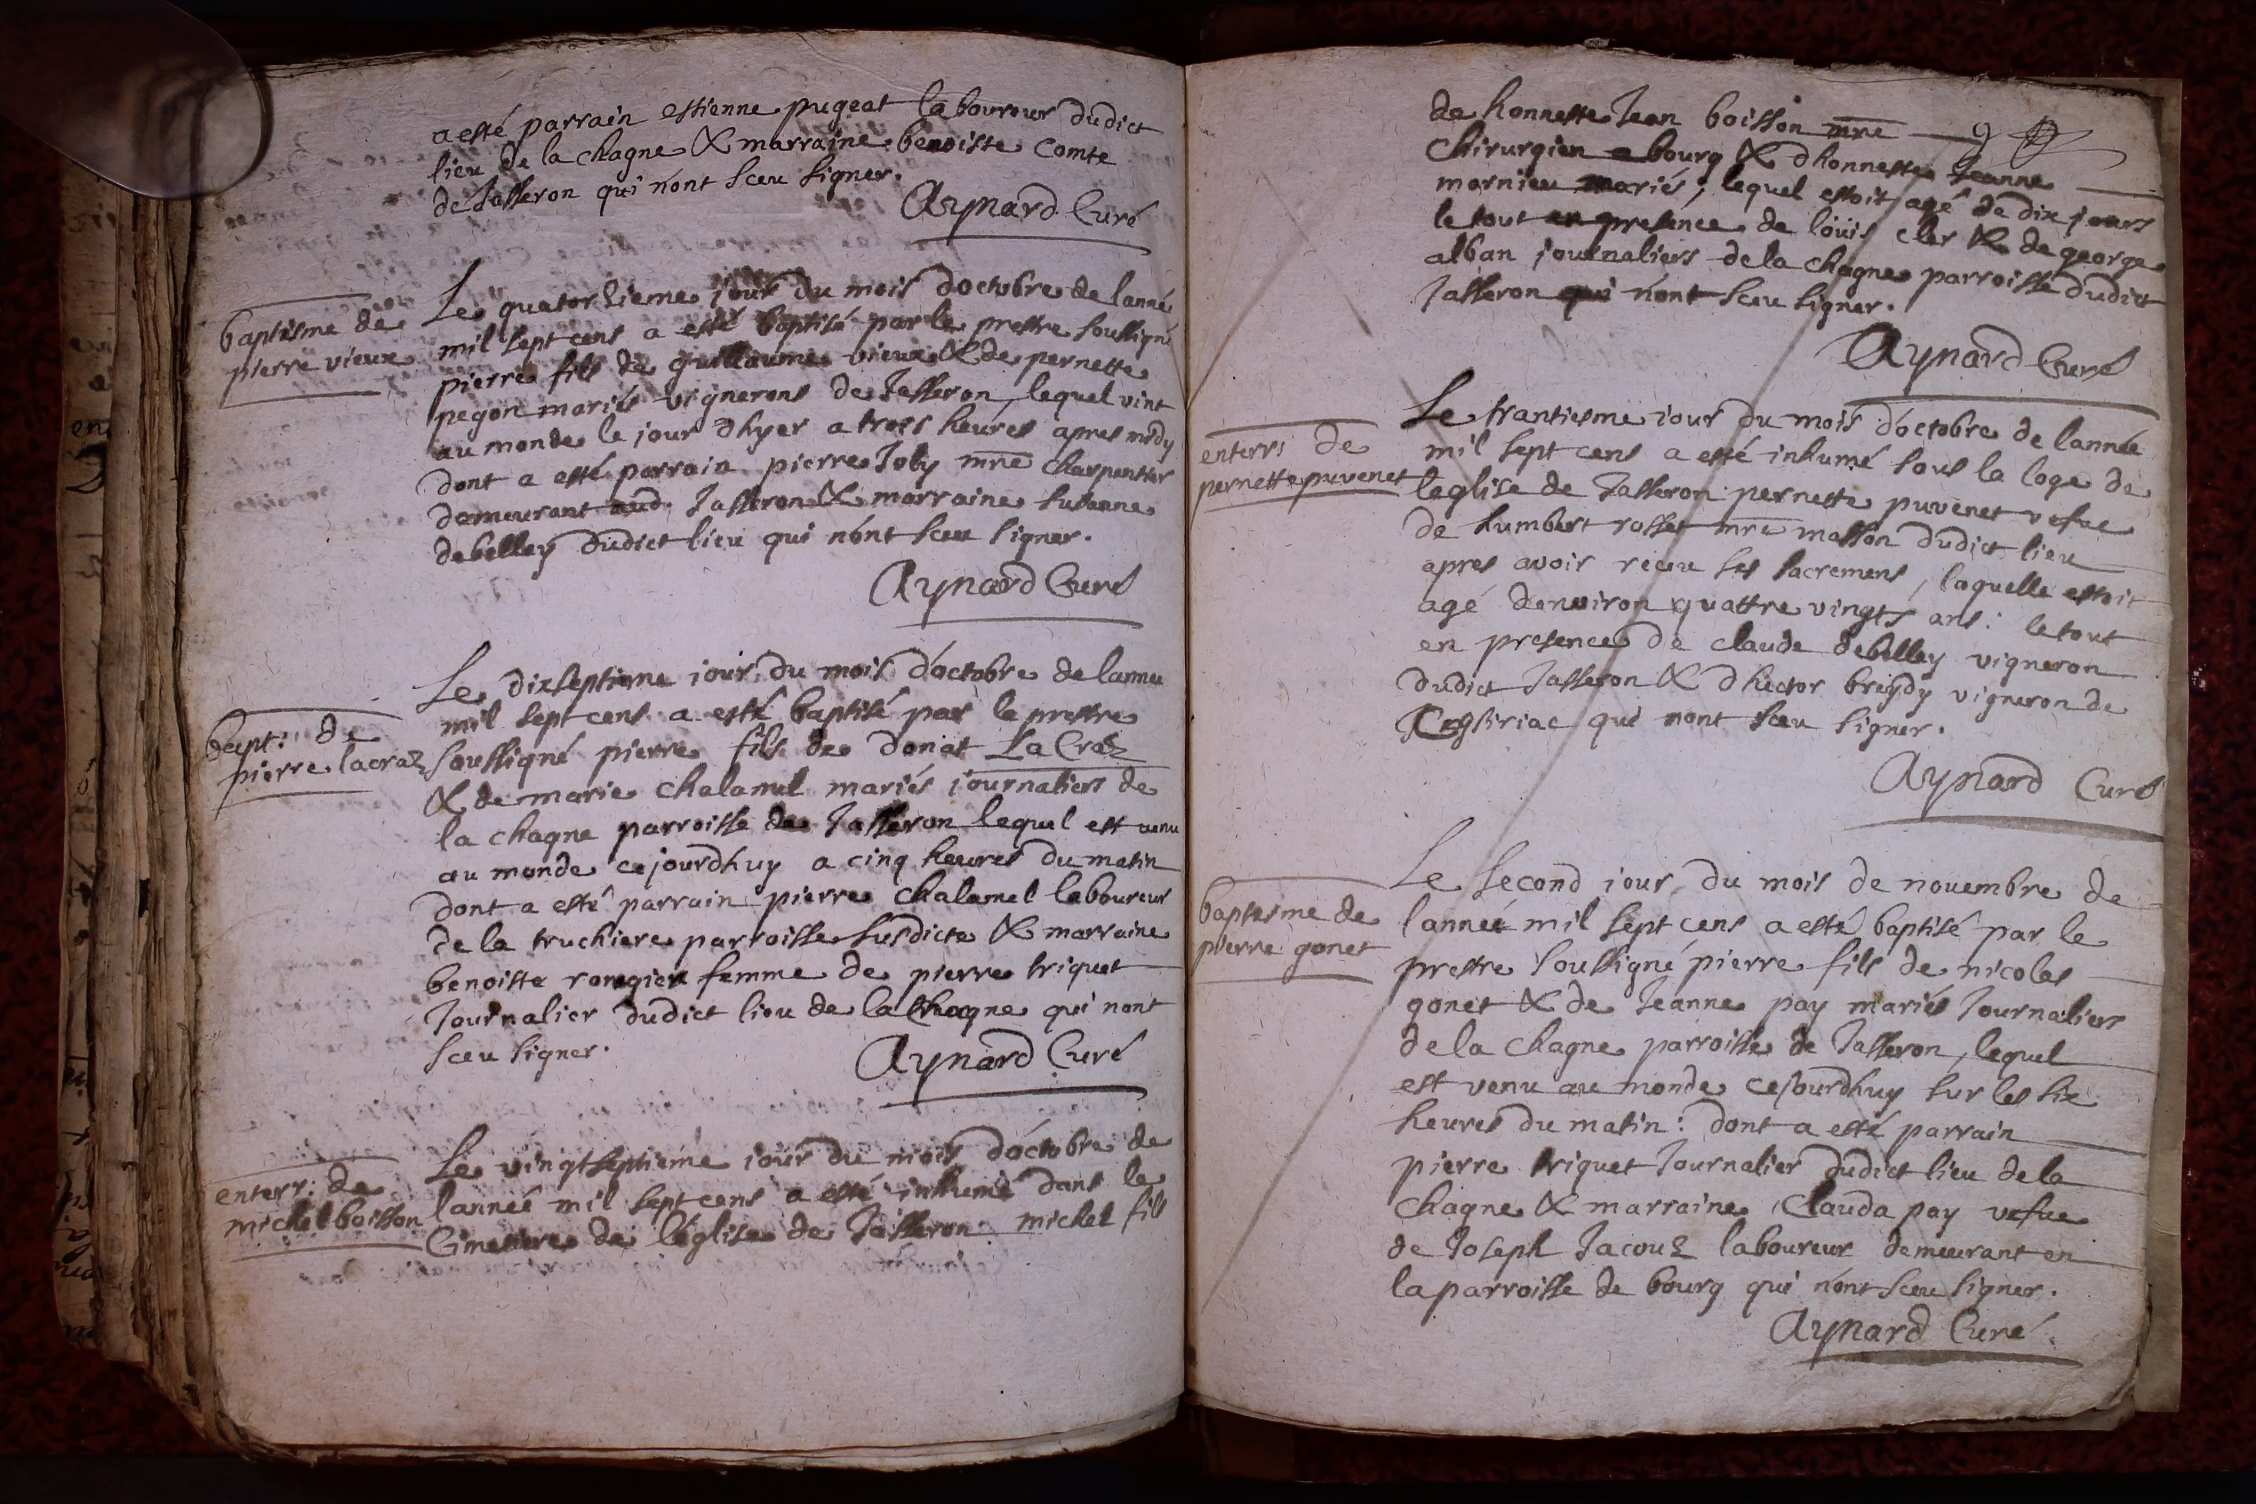 a esté parrain estienne pugeat laboureur dudict
lieu de la chagne & marraine benoiste Comte
de Jasseron qui nont sceu signer.
Aynard Curé
baptisme de
pierre vieux
Le quatorzieme jour du mois doctobre de lanné
mil sept cens a esté baptisé par le prestre soussigné
pierre fils de guillaume vieux & de pernette
pegon mariés vignerons de Jasseron, lequel vint
au monde le jour dhyer a trois heures apres midy
dont a esté parrain pierre Joly mre charpentier
demeurant aud. Jasseron & marraine susanne
debelley dudict lieu qui nont sceu signer.
Aynard Curé
bapt: de
pierre lacraz
Le dixseptieme jour du mois doctobre de lannee
mil sept cens a esté baptisé par le prestre
soussigné pierre fils de donat La Craz
& de marie chalamel mariés journaliers de
la chagne parroisse de Jasseron lequel est venu
au monde cejourdhuy a cinq heures du matin
dont a esté parrain pierre chalamel laboureur
de la truchiere parroisse susdicte & marraine
benoiste femme de pierre triquet
Journalier dudict lieu de la Chagne qui nont
sceu signer.
Aynard Curé
enterr: de
michel boisson
Le vingtseptieme jour du mois doctobre de
lannée mil sept cens a esté inhumé dans le
Cimetiere de leglise de Jasseron michel fils
de honneste Jean boisson mre
Chirurgien a bourg & dhonneste Jeanne
mornieu mariés; lequel estoit agé de dix jours
le tout en presence de loüis cler & de george
alban journaliers de la chagne parroisse dudict
Jasseron qui nont sceu signer.
Aynard Curé
enterr: de
pernette puvenet
Le trantiesme jour du mois doctobre de lannée
mil sept cens a esté inhumé sous la loge de
leglise de Jasseron pernette puvenet vefue
de humbert rosset mre masson dudict lieu
apres avoir receu ses sacremens, laquelle estoit
agé denuiron quattre vingts ans: le tout
en presence de claude debelley vigneron
dudict Jasseron & dhector vigneron de
qui nont sceu signer.
Aynard Curé
baptesme de
pierre gonet
Le second jour du mois de nouembre de
lannee mil sept cens a esté baptisé par le
prestre soussigné pierre fils de nicolas
gonet & de Jeanne pay mariés Journaliers
de la chagne parroisse de Jasseron, lequel
est venu au monde cejourdhuy sur les six
heures du matin: dont a esté parrain
pierre triquet Journalier dudict lieu de la
chagne & marraine Clauda pay vefue
de Joseph Jacouz laboureur demeurant en
la parroisse de bourg qui nont sceu signer.
Aynard Curé